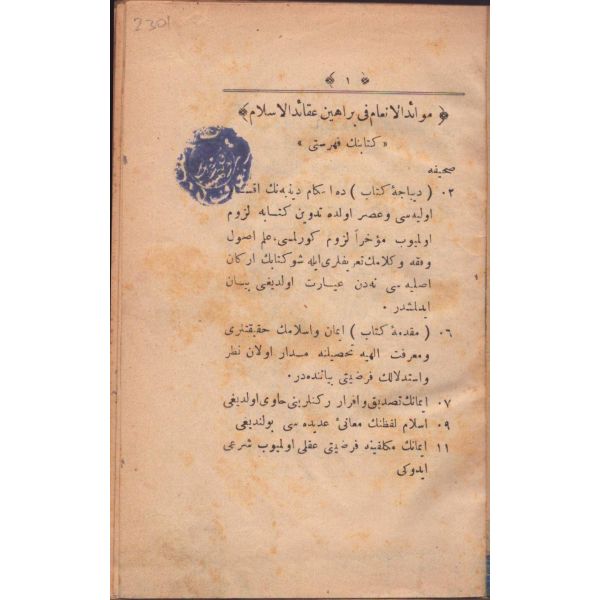 2301
﴿ ١ ﴾
﴿ موائد الانعام فی براهین عقائد الاسلام ﴾
« کتابنك فهرستی »
صحیفه
٠٢ ( دیباجهٔ کتاب ) ده احکام دینیه‌نك اقسـ
اولیه‌سی وعصر اولده تدوین کتابه لزوم
اولمیوب مؤخراً لزوم کورلمسی، علم اصول
وفقه وکلامك تعریفلری ایله شو کتابك ارکان
اصلیه‌سی نه‌دن عبارت اولدیغی بیان
ایدلمشدر .
٠٦ ( مقدمهٔ کتاب ) ایمان واسلامك حقیقتلری
ومعرفت الهیه تحصیلنه مدار اولان نظر
واستدلالك فرضیتی بیاننده‌در .
٠٧ ایمانك تصدیق و اقرار رکنلرینی حاوی اولدیغی
٠٩ اسلام لفظنك معانیٔ عدیده‌سی بولندیغی
١١ ایمانك مکلفینه فرضیتی عقلی اولمیوب شرعی
ایدوکی